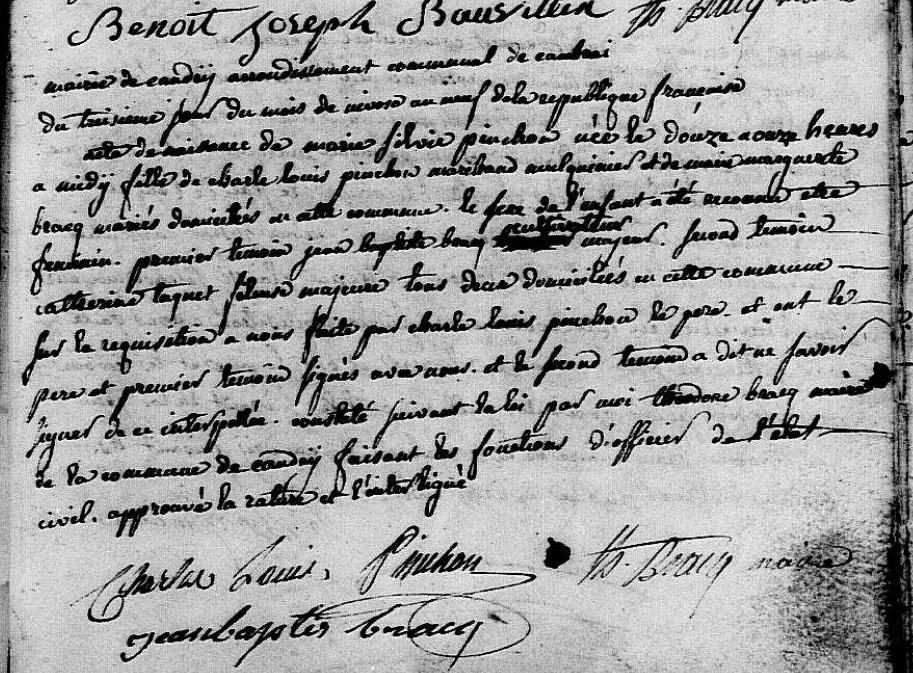 Benoit Joseph Bauvillin th. Bracq maire
mairie de caudry arrondissement communal de cambrai
du troisieme jour du mois de nivose an neuf de la republique française
acte de naissance de marie silvie pinchon née le douze a onze heures
a midy fille de charle louis pinchon marchand mulquinier et de marie marguerite
bracq mariés domiciliés en cette commune. le sexe de l'enfant a été reconnu etre
feminin. premier temoin jean baptiste bracq cultivateur majeur. second temoin
catherine taquet fileuse majeure tous deux domiciliés en cette commune
sur la requisition a nous faite par charle louis pinchon le pere. et ont le
pere et premier temoin signés avec nous. et le second temoin a dit ne savoir
signer de ce interpellée. constaté suivant la loi par moi theodore bracq maire
de la commune de caudry faisant les fonctions d'officier de l'état
civil. approuvé la rature et l'interligne
Charles Louis Pinchon th. Bracq maire
jean baptis bracq